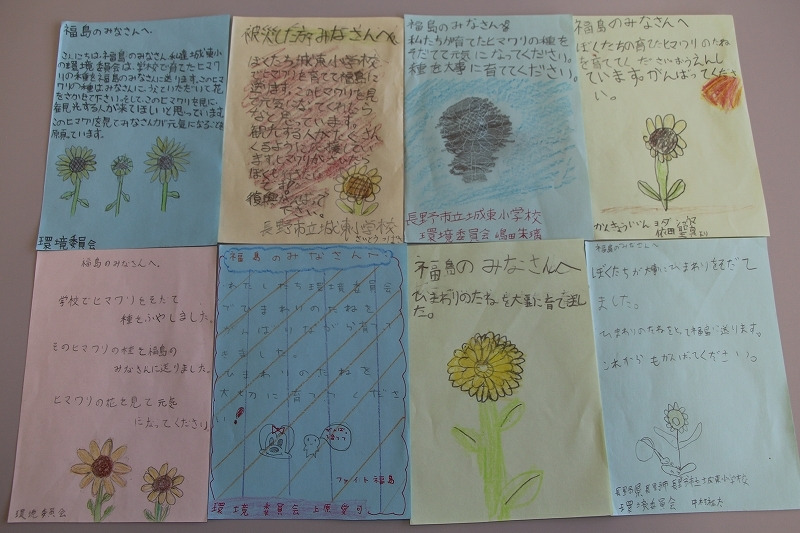 福島のみなさんへ。
こんにちは、福島のみなさん。私達城東小
の環境委員会は、学校で育てたヒマワ
リの種を福島のみなさんに送ります。このヒマ
ワリの種はみなさんに、うえていただいて花
をさかせて下さい。そして、このヒマワリを見に、
観光する人が来てほしいと思っています。
このヒマワリを見てみなさんが元気になることを
願っています。
環境委員会
被災した方みなさんへ
ぼくたち城東小学校
でヒマワリを育てて福島に
送ります。このヒマワリを見
て元気になってくれたら
なと思っています。
観光する人がたくさん
くるように応援してい
ます。ヒマワリがさいたら
ぼくも行きたい
です。
復興がんばって
下さい。
長野市立城東小学校
福島のみなさま
私たちが育てたヒマワリの種を
そだてて元気になってください。
種を大事に育ててください。
長野市立城東小学校
環境委員会 嶋田朱璃
福島のみなさんへ
ぼくたちの育てたヒマワリのたね
を育ててください。おうえんし
ています。がんばってくださ
い。
かんきょういいん
福島のみなさんへ。
学校でヒマワリをそだて
種をふやしました。
そのヒマワリの種を福島の
みなさんに送りました。
ヒマワリの花を見て元気
になってください。
環境委員会
福島のみなさんへ
わたしたち環境委員会
でひまわりのたねを
がんばりながら育てて
きました。
ひまわりのたねを
大切に育ててくださ
い!
がんばって
ファイト福島
環境委員会 上原
福島のみなさんへ
ひまわりのたねを大事に育てまし
た。
福島のみなさんへ
ぼくたちが畑にひまわりをそだて
ました。
ひまわりのたねをとって福島に送ります。
これからもがんばってください。
長野県長野市長野市立城東小学校
環境委員会 中村